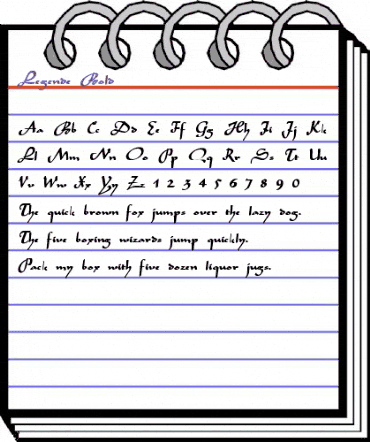 Legende Bold
Aa Bb Cc Dd Ee Ff Gg Hh Ii Jj Kk
Ll Mm Nn Oo Pp Qq Rr Ss Tt Uu
Vv Ww Xx Yy Zz 1 2 3 4 5 6 7 8 9 0
The quick brown fox jumps over the lazy dog.
The five boxing wizards jump quickly.
Pack my box with five dozen liquor jugs.